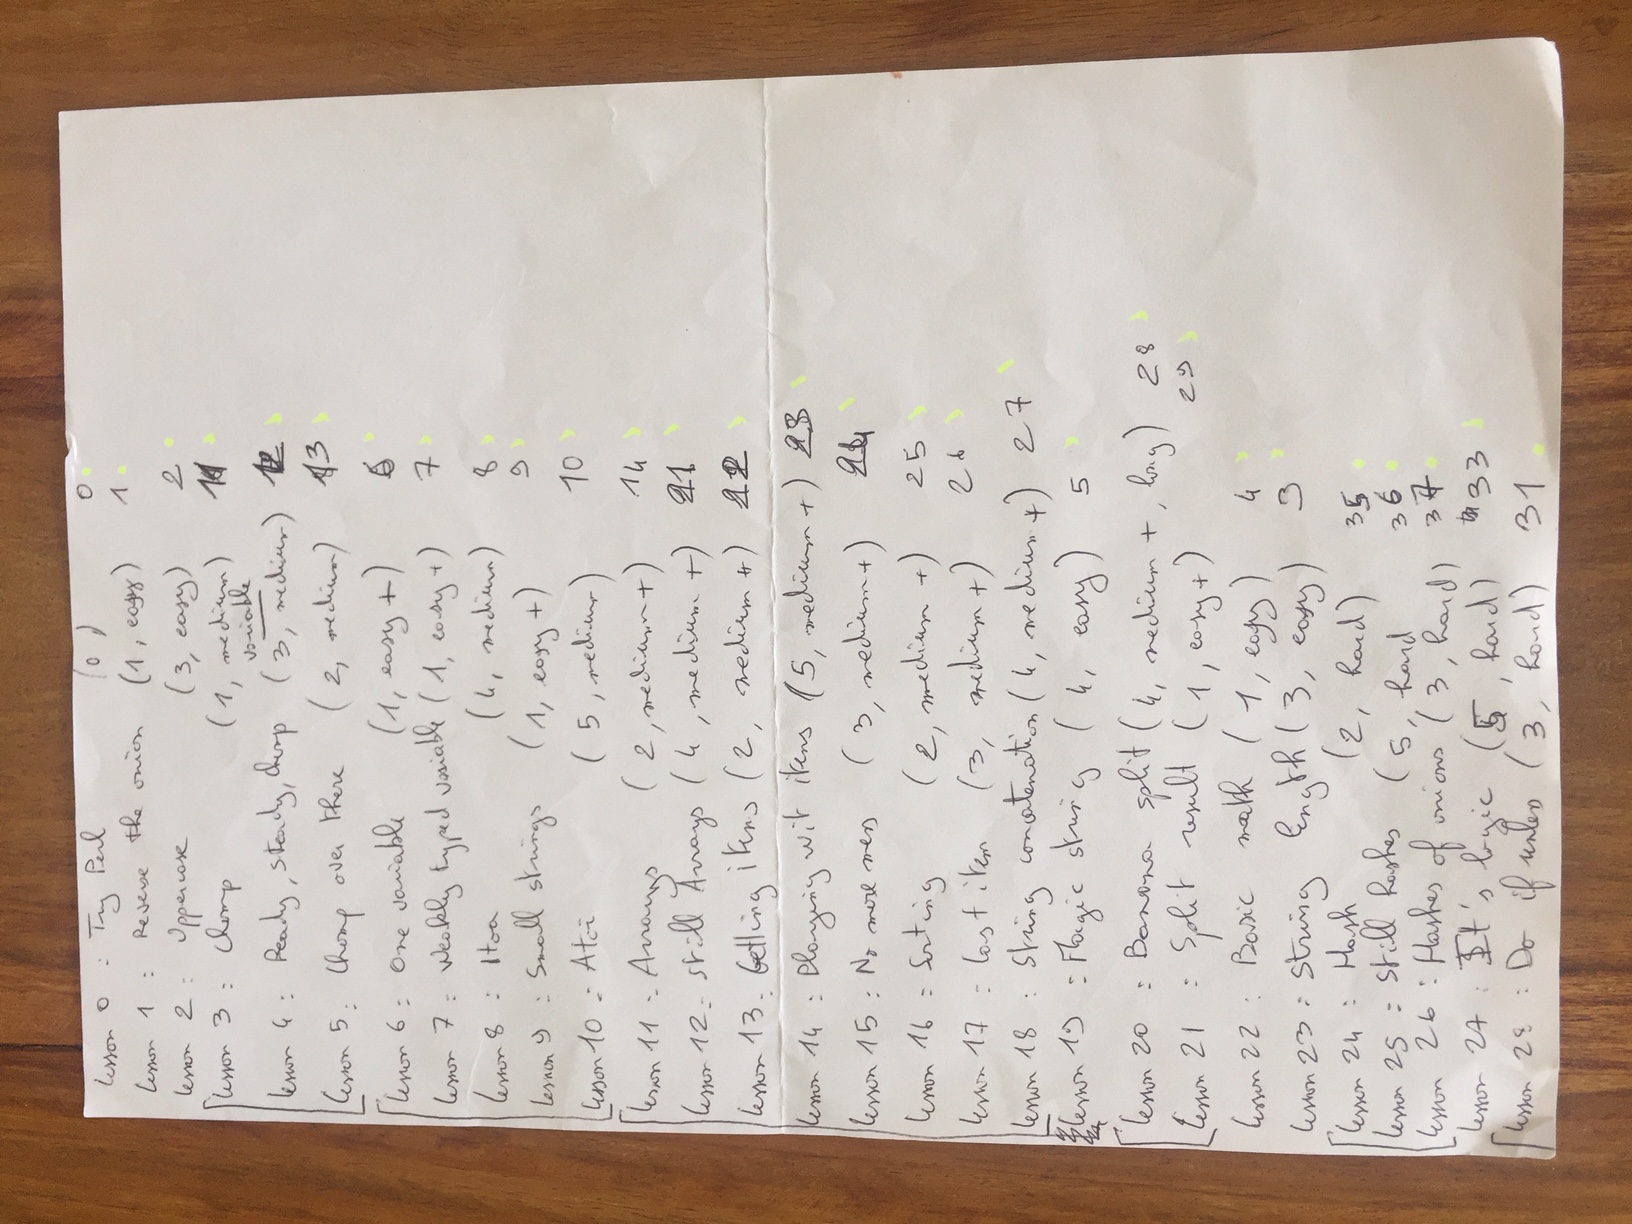 Lesson 0 : Try Perl (0, ) 0
Lesson 1 : Reverse the onion (1, easy) 1
Lesson 2 : Uppercase (3, easy) 2
Lesson 3 : Chomp (1, medium) 11
variable
Lesson 4 : Ready, steady, chomp (3, medium) 12
Lesson 5 : Chomp over there (2, medium) 13
Lesson 6 : One variable (1, easy +) 6
Lesson 7 : Weakly typed variable (1, easy +) 7
Lesson 8 : Itoa (4, medium) 8
Lesson 9 : Small strings (1, easy +) 9
Lesson 10 : Atoi (5, medium) 10
Lesson 11 : Arrays (2, medium +) 14
Lesson 12 : Still Arrays (4, medium +) 21
Lesson 13 : Getting items (2, medium +) 22
Lesson 14 : Playing wit items (5, medium +) 23
Lesson 15 : No more mess (3, medium +) 24
Lesson 16 : Sorting (2, medium +) 25
Lesson 17 : Last item (3, medium +) 26
Lesson 18 : String concatenation (4, medium +) 27
Lesson 19 : Magic string (4, easy) 5
Lesson 20 : Banana split (4, medium +, long) 28
Lesson 21 : Split result (1, easy +) 29
Lesson 22 : Basic math (1, easy) 4
Lesson 23 : String length (3, easy) 3
Lesson 24 : Hash (2, hard) 35
Lesson 25 : Still hashes (5, hard 36
Lesson 26 : Hashes of onions (3, hard) 37
Lesson 27 : It's logic (5, hard) 33
Lesson 28 : Do if unless (3, hard) 31